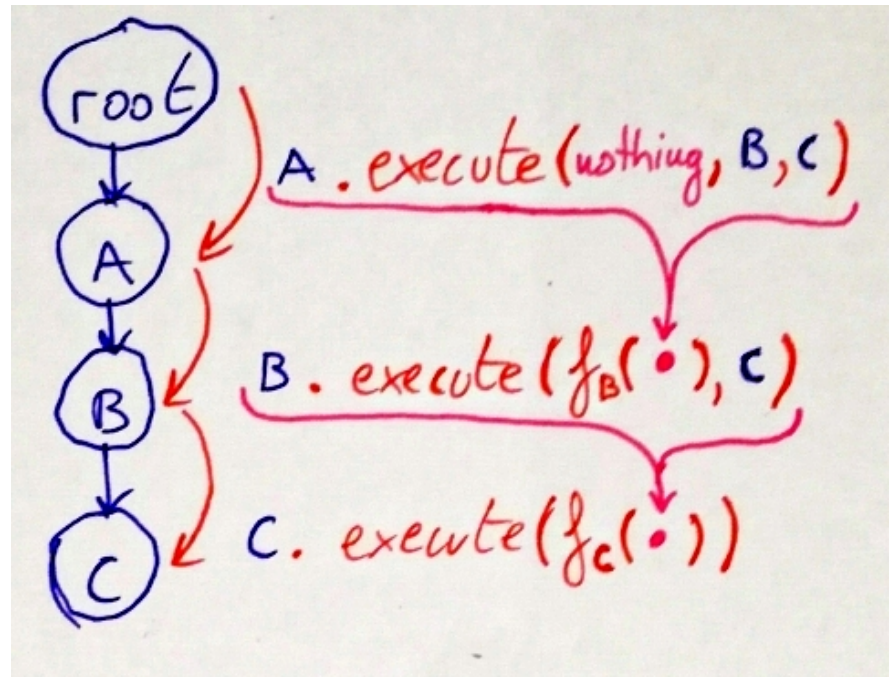 root
A . execute(nothing, B, C)
A
B . execute(f_B(•), C)
B
C. execute(f_C(•))
C